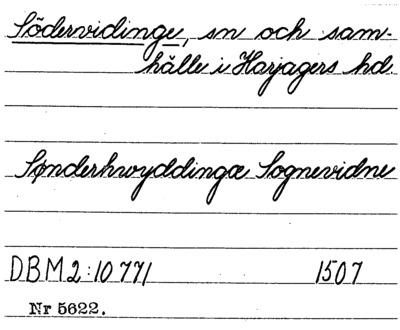 Södervidinge, sn och sam-
hälle i Harjagers hd.
Sønderhwyddingæ Sognevidne
DBM2:10771 1507
Nr 5622.